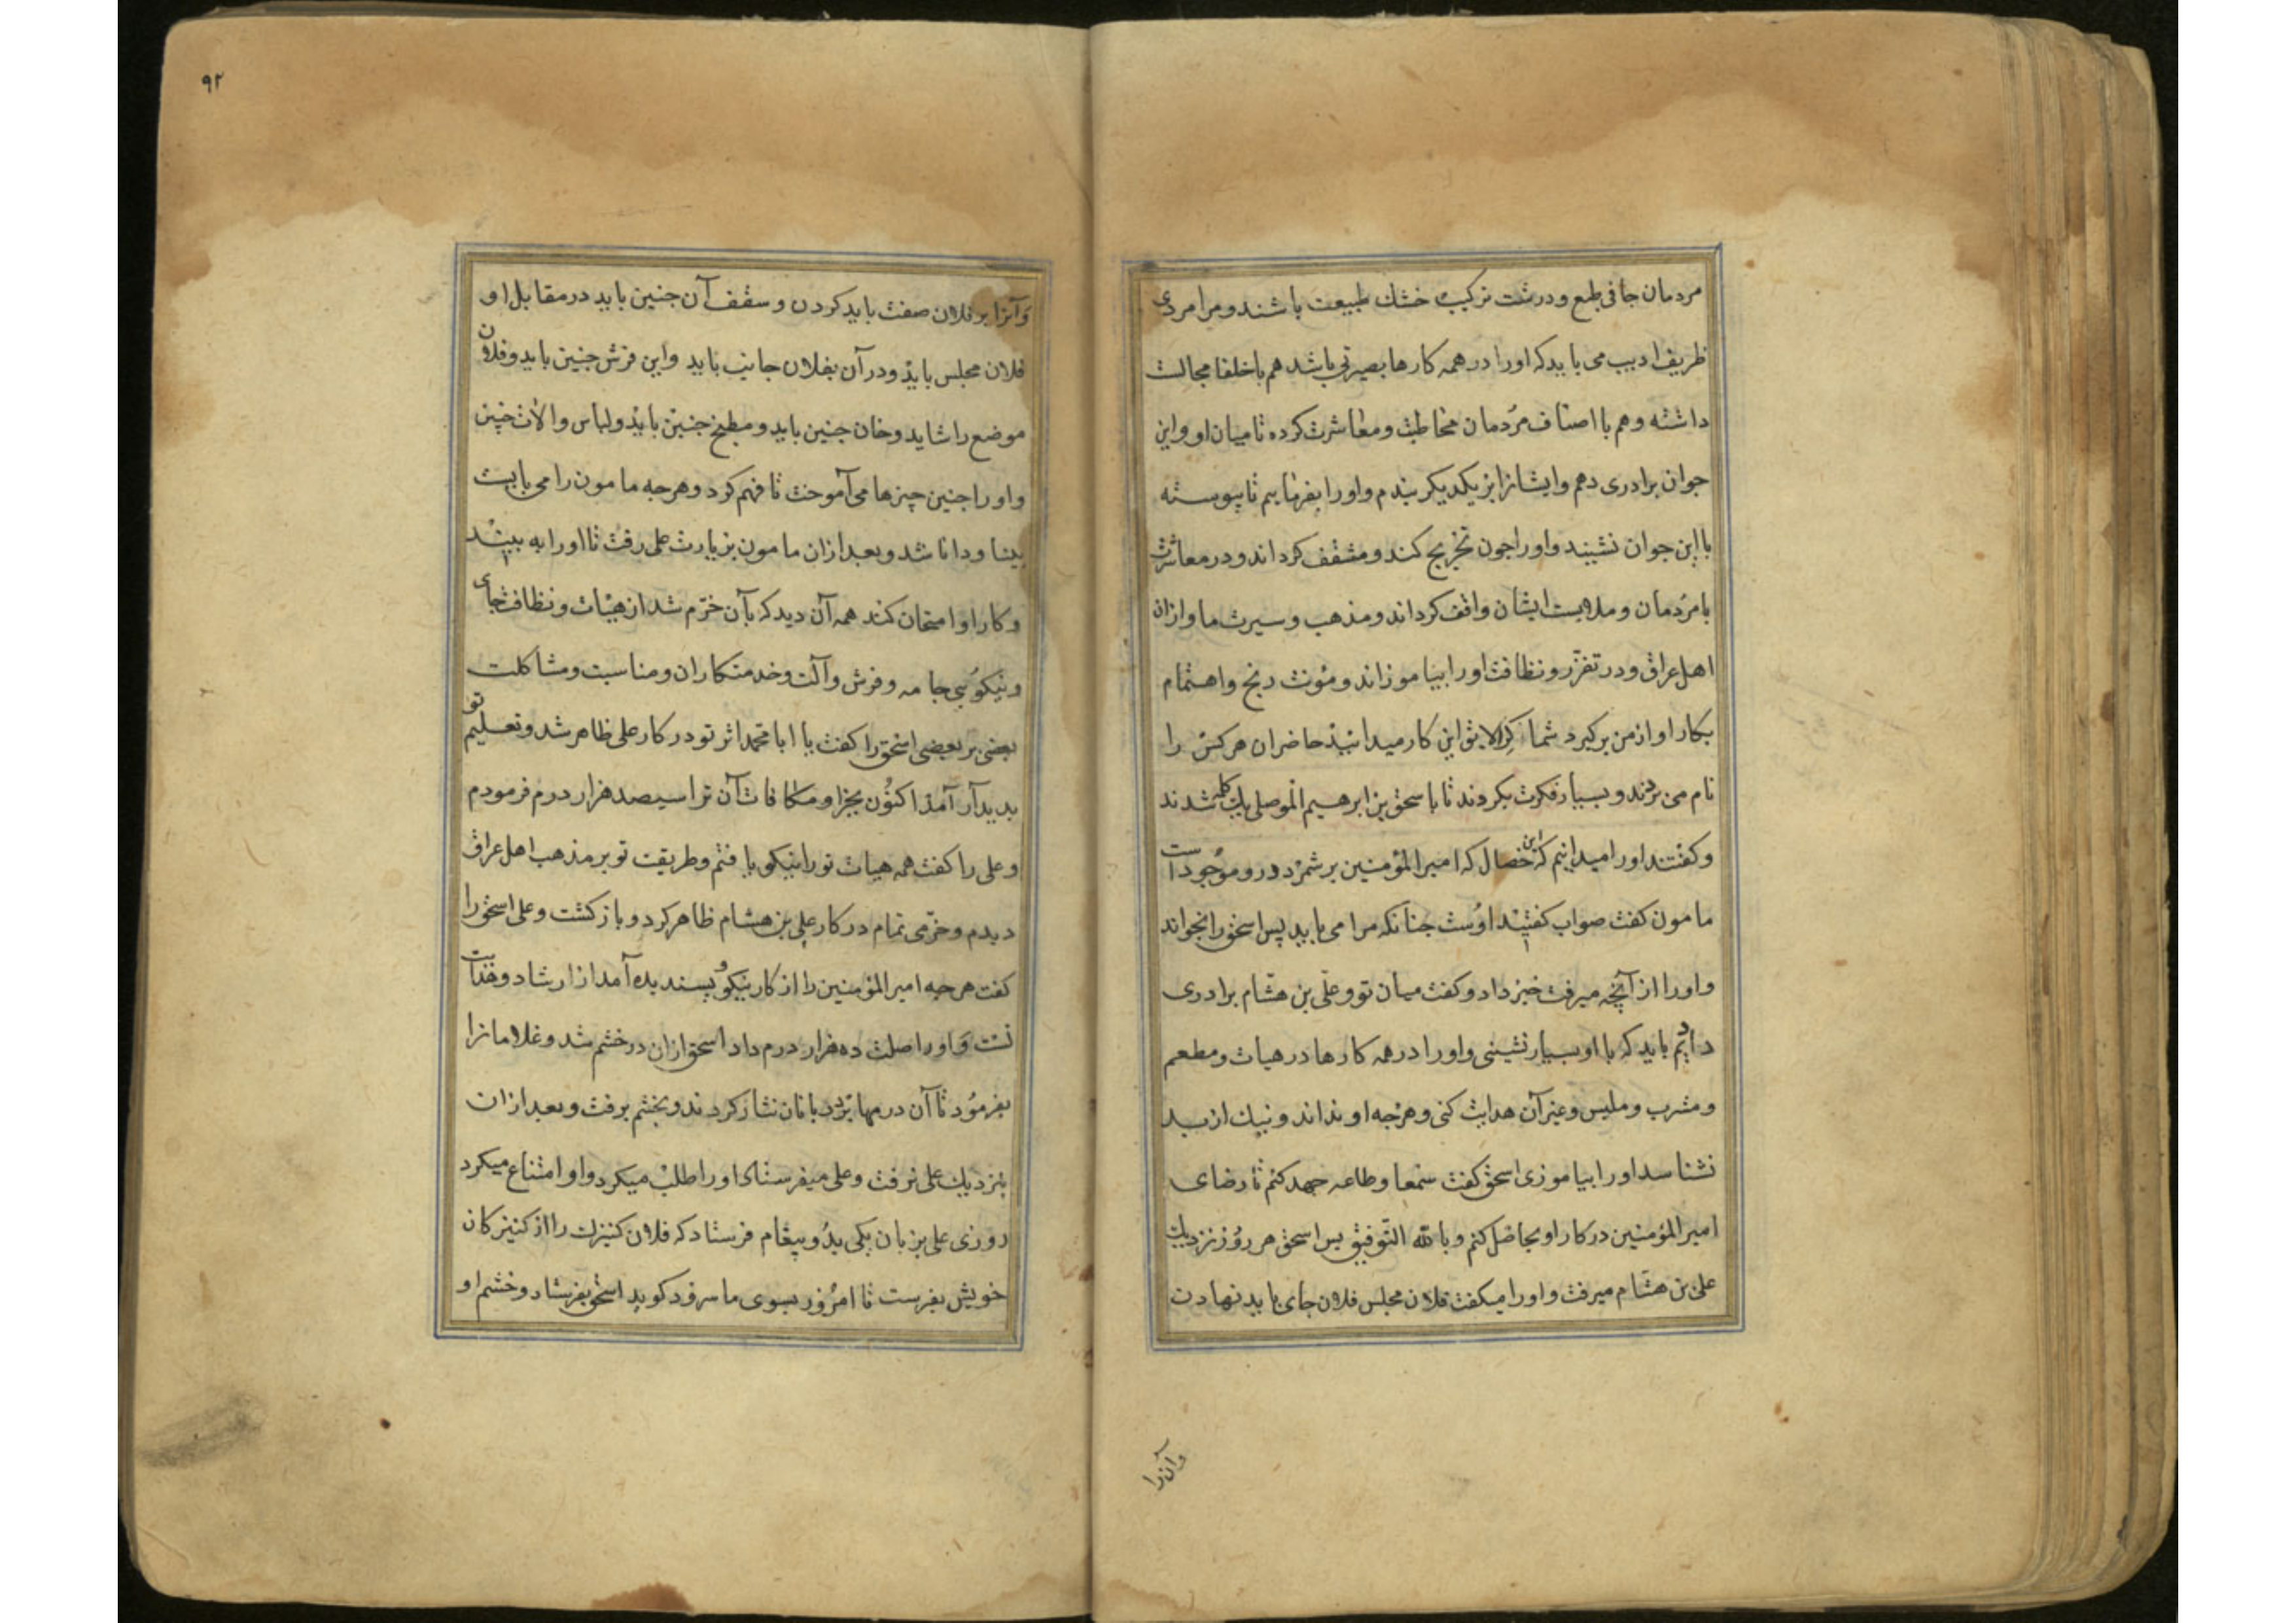 مردمان جافی طبع و درشت ترکیب خشك طبیعت باشند و مرا مردی
ظریف ادیب می باید که اورا در همه کارها بصیرتی باشد هم با خلفا مجالست
داشته و هم با اصناف مردمان مخاطبت و معاشرت کرده تا میان او و این
جوان برادری دهم و ایشانرا بریکدیکر بندم و اورا بفرمایم تا پیوسته
با این جوان نشیند و اورا جون تخریج کند و مثقف کرداند و در معاشرت
با مردمان و ملابست ایشان واقف کرداند و مذهب و سیرت ما و ازان
اهل عراق و در تقزر و نظافت اورا بیاموزاند و مؤنت رنج و اهتمام
بکار او از من برکیرد شما کرا لایق این کار میدانید حاضران هر کس را
نام می بردند و بسیار فکرت بکردند تا با سحق بن ابرهیم الموصلی یك کلمه شدند
و کفتند اورا میدانیم که این خصال که امیر المؤمنین برشمرد درو موجود است
مامون کفت صواب کفتید اوست جنانکه مرا می باید پس اسحق را بخواند
و اورا از آنچه میرفت خبر داد و کفت میان تو و علی بن هشام برادری
دادیم باید که با او بسیار نشینی و اورا در همه کارها در هیات و مطعم
و مشرب و ملبس و غیر آن هدایت کنی و هرجه او نداند و نیك از بد
نشناسد اورا بیاموزی اسحق کفت سمعا و طاعه جهد کنم تا رضای
امیر المؤمنین در کار او بحاصل کنم و بالله التوفیق پس اسحق هر روز نزدیك
علی بن هشام میرفت و اورا میکفت فلان مجلس فلان جای باید نهادن
وآنرا
۹۲
وآنرا بر فلان صفت باید کردن و سقف آن جنین باید در مقابل او
فلان مجلس باید و در آن بفلان جانب باید و این فرش جنین باید و فلان
موضع را شاید و خان جنین باید و مطبخ جنین باید و لباس و الات چنین
و اورا جنین چیزها می آموخت تا فهم کرد و هرجه مامون را می بایست
بینا و دانا شد و بعد ازان مامون بزیارت علی رفت تا اورا به بیند
و کار او امتحان کند همه آن دید که بآن خرم شد از هیات و نظافت جای
و نیکویی جامه و فرش و آلت و خدمتکاران و مناسبت و مشاکلت
بعضی بر بعضی اسحق را کفت یا ابا محمد اثر تو در کار علی ظاهر شد و تعلیم تو
بدیدار آمد اکنون بجزا و مکافات آن ترا سیصد هزار درم فرمودم
و علی را کفت همه هیات تو را نیکو یافتم و طریقت تو بر مذهب اهل عراق
دیدم و خرمی تمام در کار علی بن هشام ظاهر کرد و باز کشت و علی اسحق را
کفت هرجه امیر المؤمنین را از کار نیکو و پسندیده آمد از ارشاد و هدایت
تست و اورا صلت ده هزار درم داد اسحق ازان در خشم شد و غلامانرا
بفرمود تا آن درمها بر دربانان نثار کردند و بخشم برفت و بعد ازان
بنزدیك علی نرفت و علی میفرستاد و اورا طلب میکرد و او امتناع میکرد
روزی علی بزبان یکی بدو پیغام فرستاد که فلان کنیزك را از کنیزکان
خویش بفرست تا امروز بسوی ما سرود کوید اسحق بفرستاد و خشم او